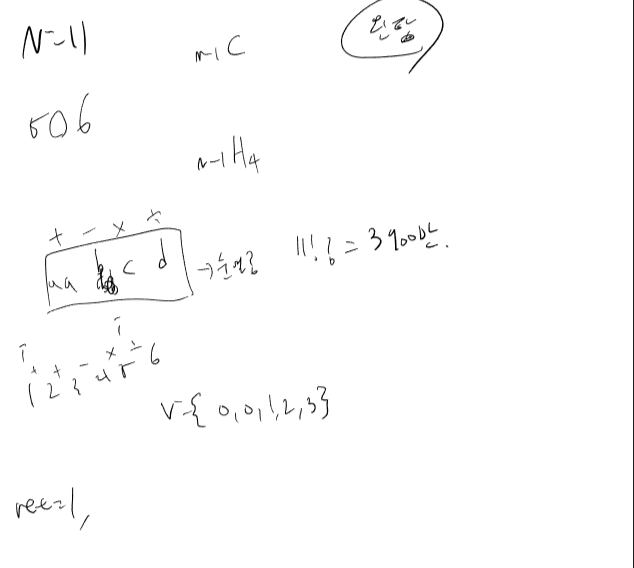 N=11
n-1C
506
n-1H4
+ - × ÷
aa b c d
→순열?
11! ? = 3900만.
i
i
+ + - × ÷
1 2 3 4 5 6
V={0,0,1,2,3}
rec=1,